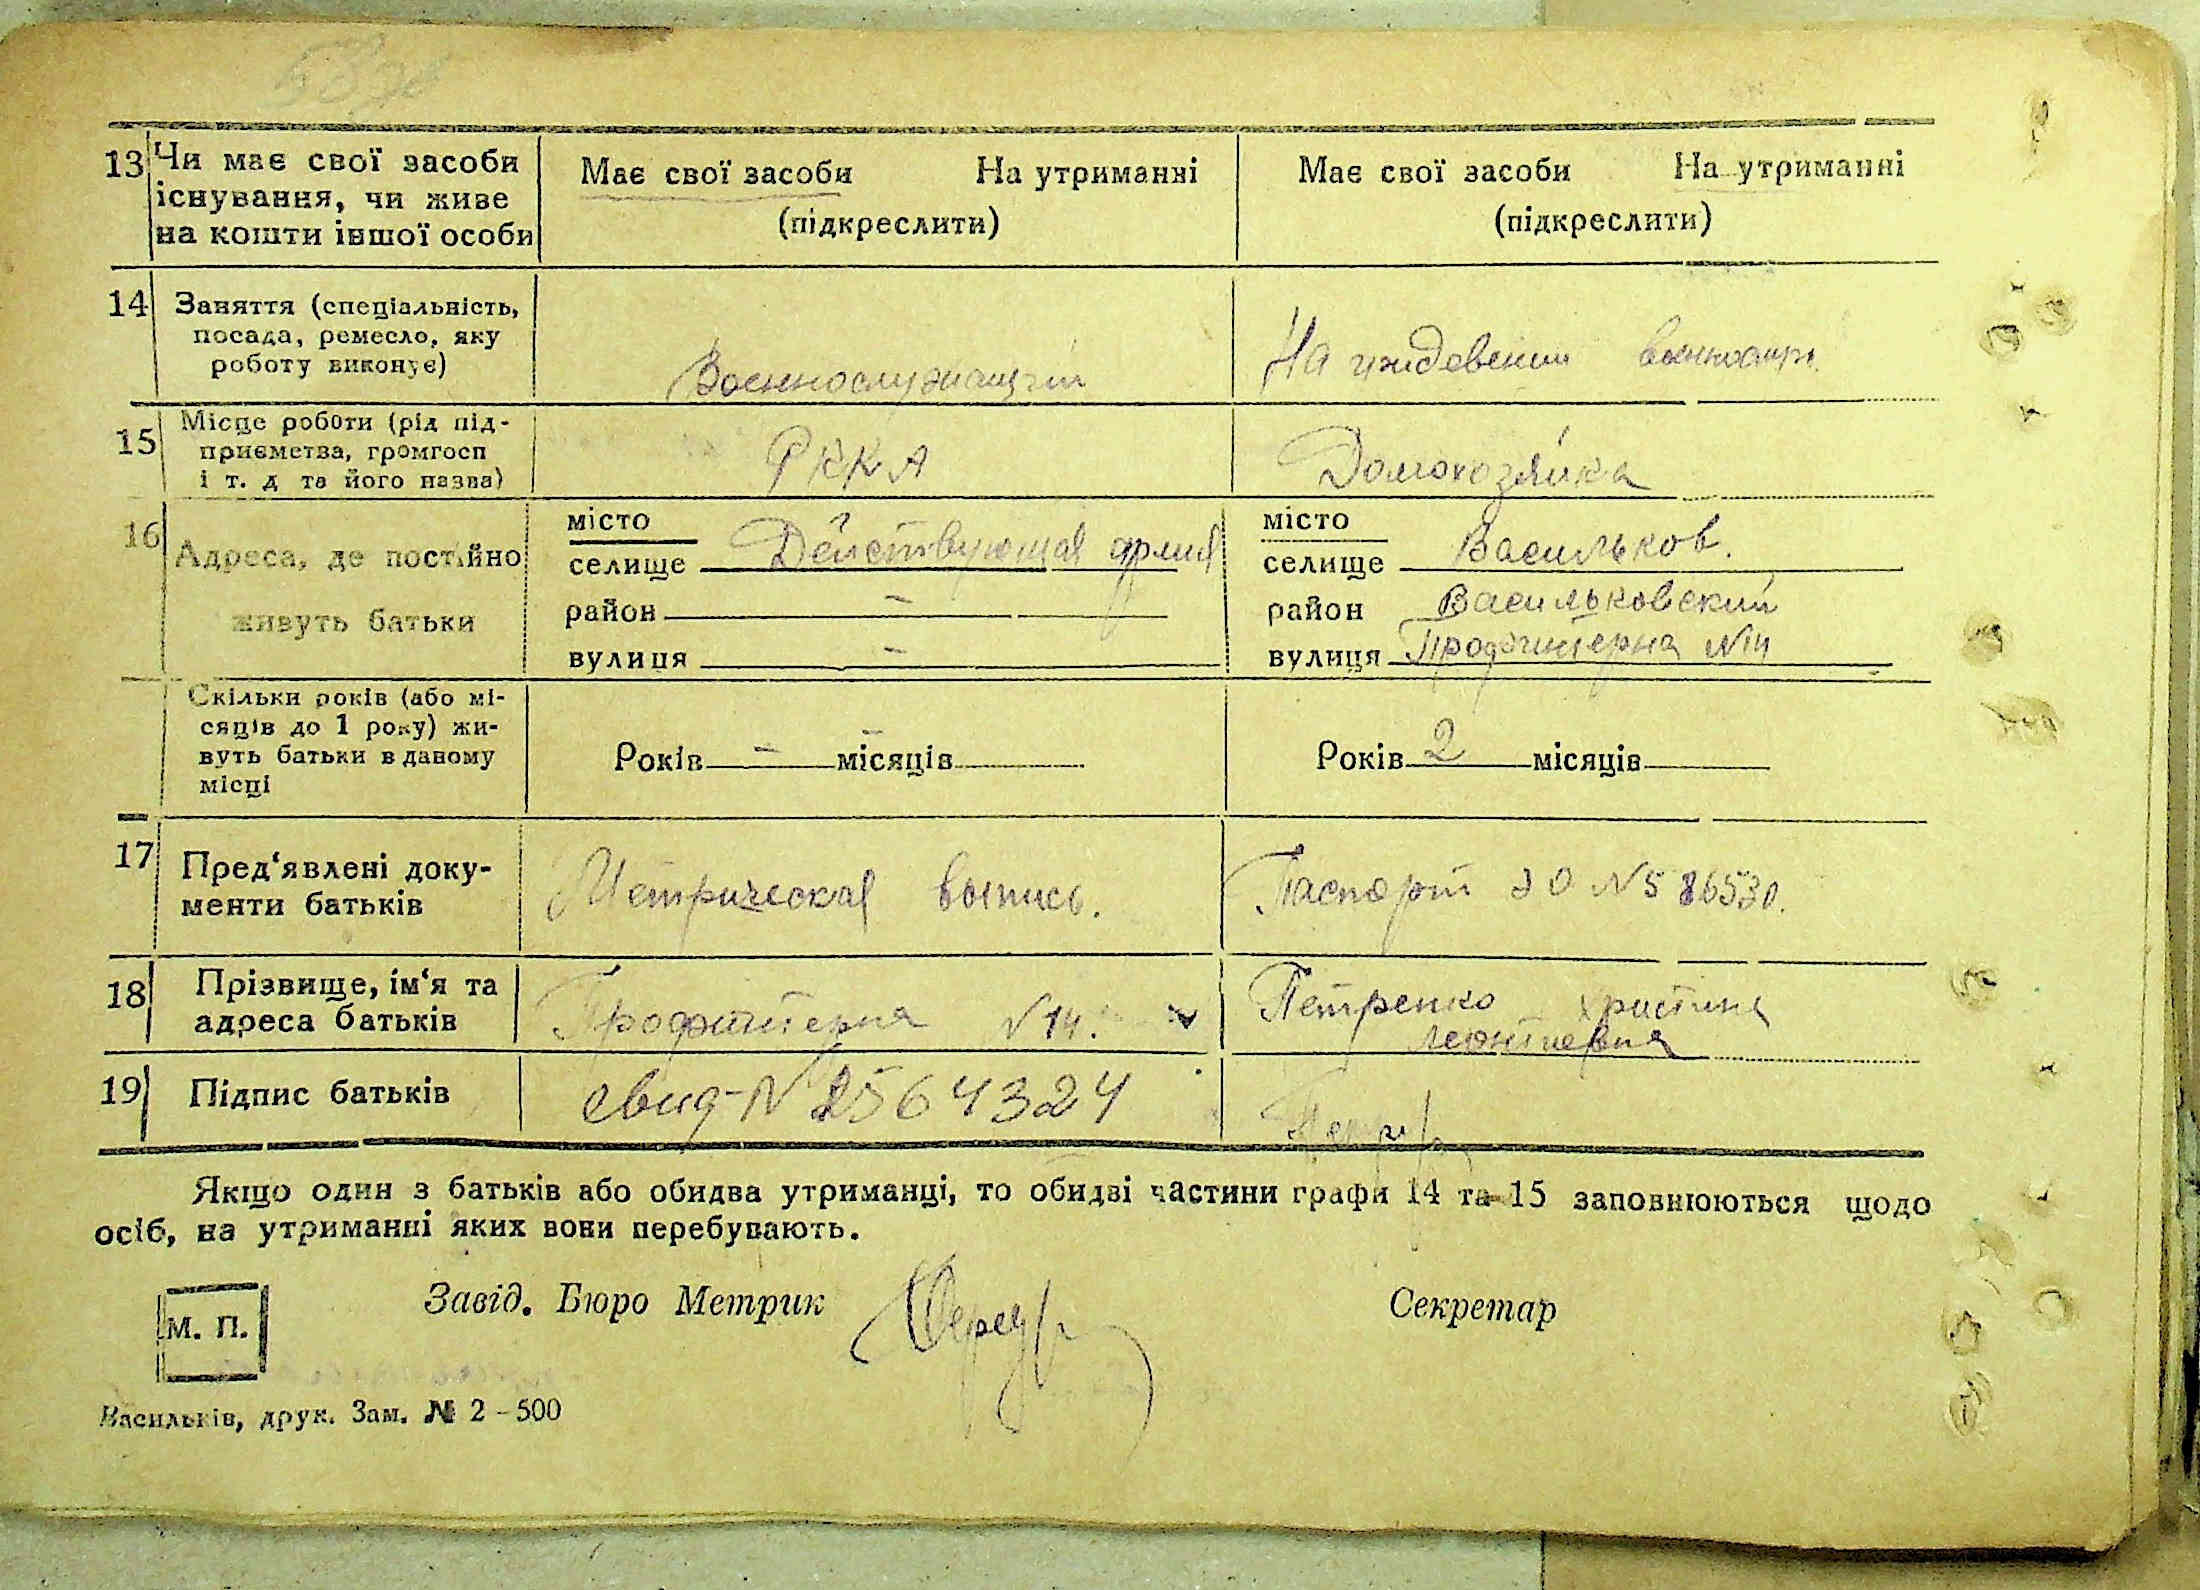 13 Чи має свої засоби існування, чи живе на кошти іншої особи
Має свої засоби На утриманні
(підкреслити)
Має свої засоби На утриманні
(підкреслити)
14 Заняття (спеціальність,
посада, ремесло, яку
роботу виконує)
Военнослужащий
На иждевении
15 Місце роботи (рід під-
приємства, громгосп
і т. д та його назва)
РККА
Домохозяйка
16 Адреса, де постійно
живуть батьки
місто
селище Действующая армия
район –
вулиця –
місто
селище Васильков.
район Васильковский
вулиця Профинтерна №14
Скільки років (або мі-
сяців до 1 року) жи-
вуть батьки в даному
місці
Років – місяців –
Років 2 місяців
17 Пред‘явлені доку-
менти батьків
Метрическая выпись.
Паспорт ЭО №586530.
18 Прізвище, ім‘я та
адреса батьків
Профинтерна №14.
Петренко Христина
Леонтиевна
19 Підпис батьків
свид-N 2564324
Якщо один з батьків або обидва утриманці, то обидві частини графи 14 та 15 заповнюються щодо
осіб, на утриманні яких вони перебувають.
М. П.
Завід. Бюро Метрик
Секретар
Васильків, друк. Зам. № 2 – 500